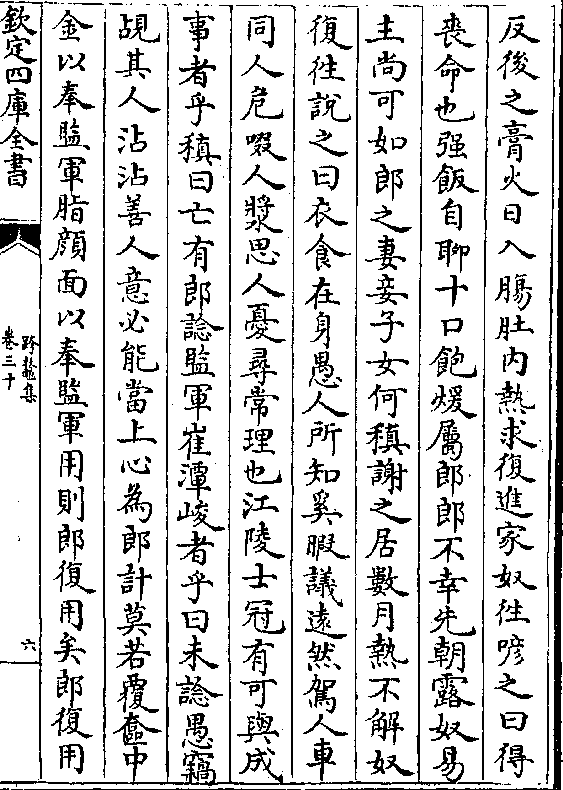 反後之膏火日入腸肚内熱求復進家奴徃唁之曰得
喪命也强飯自聊十口飽煖屬郎郎不幸先朝露奴易
主尚可如郎之妻妾子女何稹謝之居數月熱不解奴
復徃說之曰衣食在身愚人所知奚暇議遠然駕人車
同人危啜人漿思人憂尋常理也江陵士冠有可與成
事者乎稹曰亡有郎諗監軍崔潭峻者乎曰未諗愚竊
覘其人沾沾善人意必能當上心為郎計莫若覆奩中
金以奉監軍脂顔面以奉監軍用則郎復用矣郎復用
欽定四庫全書
卷三十
六